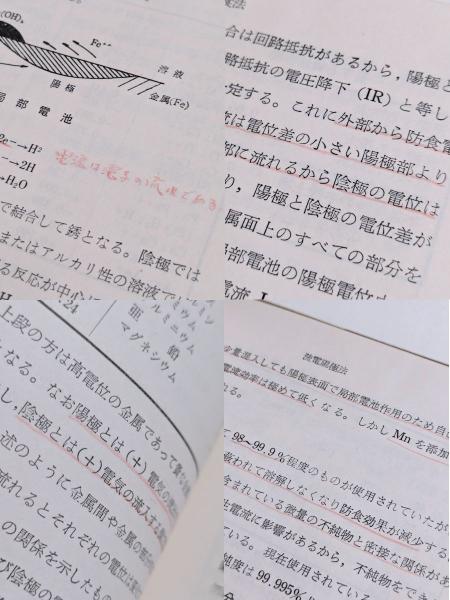 (OH)₂
Fe⁺⁺
溶液
陽極
金属(Fe)
局部電池
2e⁻→H²
→2H
→H₂O
電流は電子の流れである
で結合して錆となる。陰極では
またはアルカリ性の溶液で
る反応が中心に
合は回路抵抗があるから，陽極と
路抵抗の電圧降下（IR）と等し
定する。これに外部から防食電
流は電位差の小さい陽極部より
部に流れるから陰極の電位は
り，陽極と陰極の電位差が
属面上のすべての部分を
局部電池の陽極電位
電流 I
1・24
アルミニウム
亜鉛
マグネシウム
上段の方は高電位の金属であって
となる。なお陽極とは（＋）電気の
し，陰極とは（＋）電気の流入する
述のように金属間や金属の
流れるとそれぞれの電位は
の関係を示したもの
び陰極の
流電陽極法
少量混入しても陽極表面で局部電池作用のため自
電流効率は極めて低くなる。しかし Mn を添加
れる。
て 98〜99.9％程度のものが使用されていたが
覆われて溶解しなくなり防食効果が減少する
含まれている微量の不純物と密接な関係が
生電流に影響があるから，不純物をでき
ている。現在使用されている
純度は 99.995％に